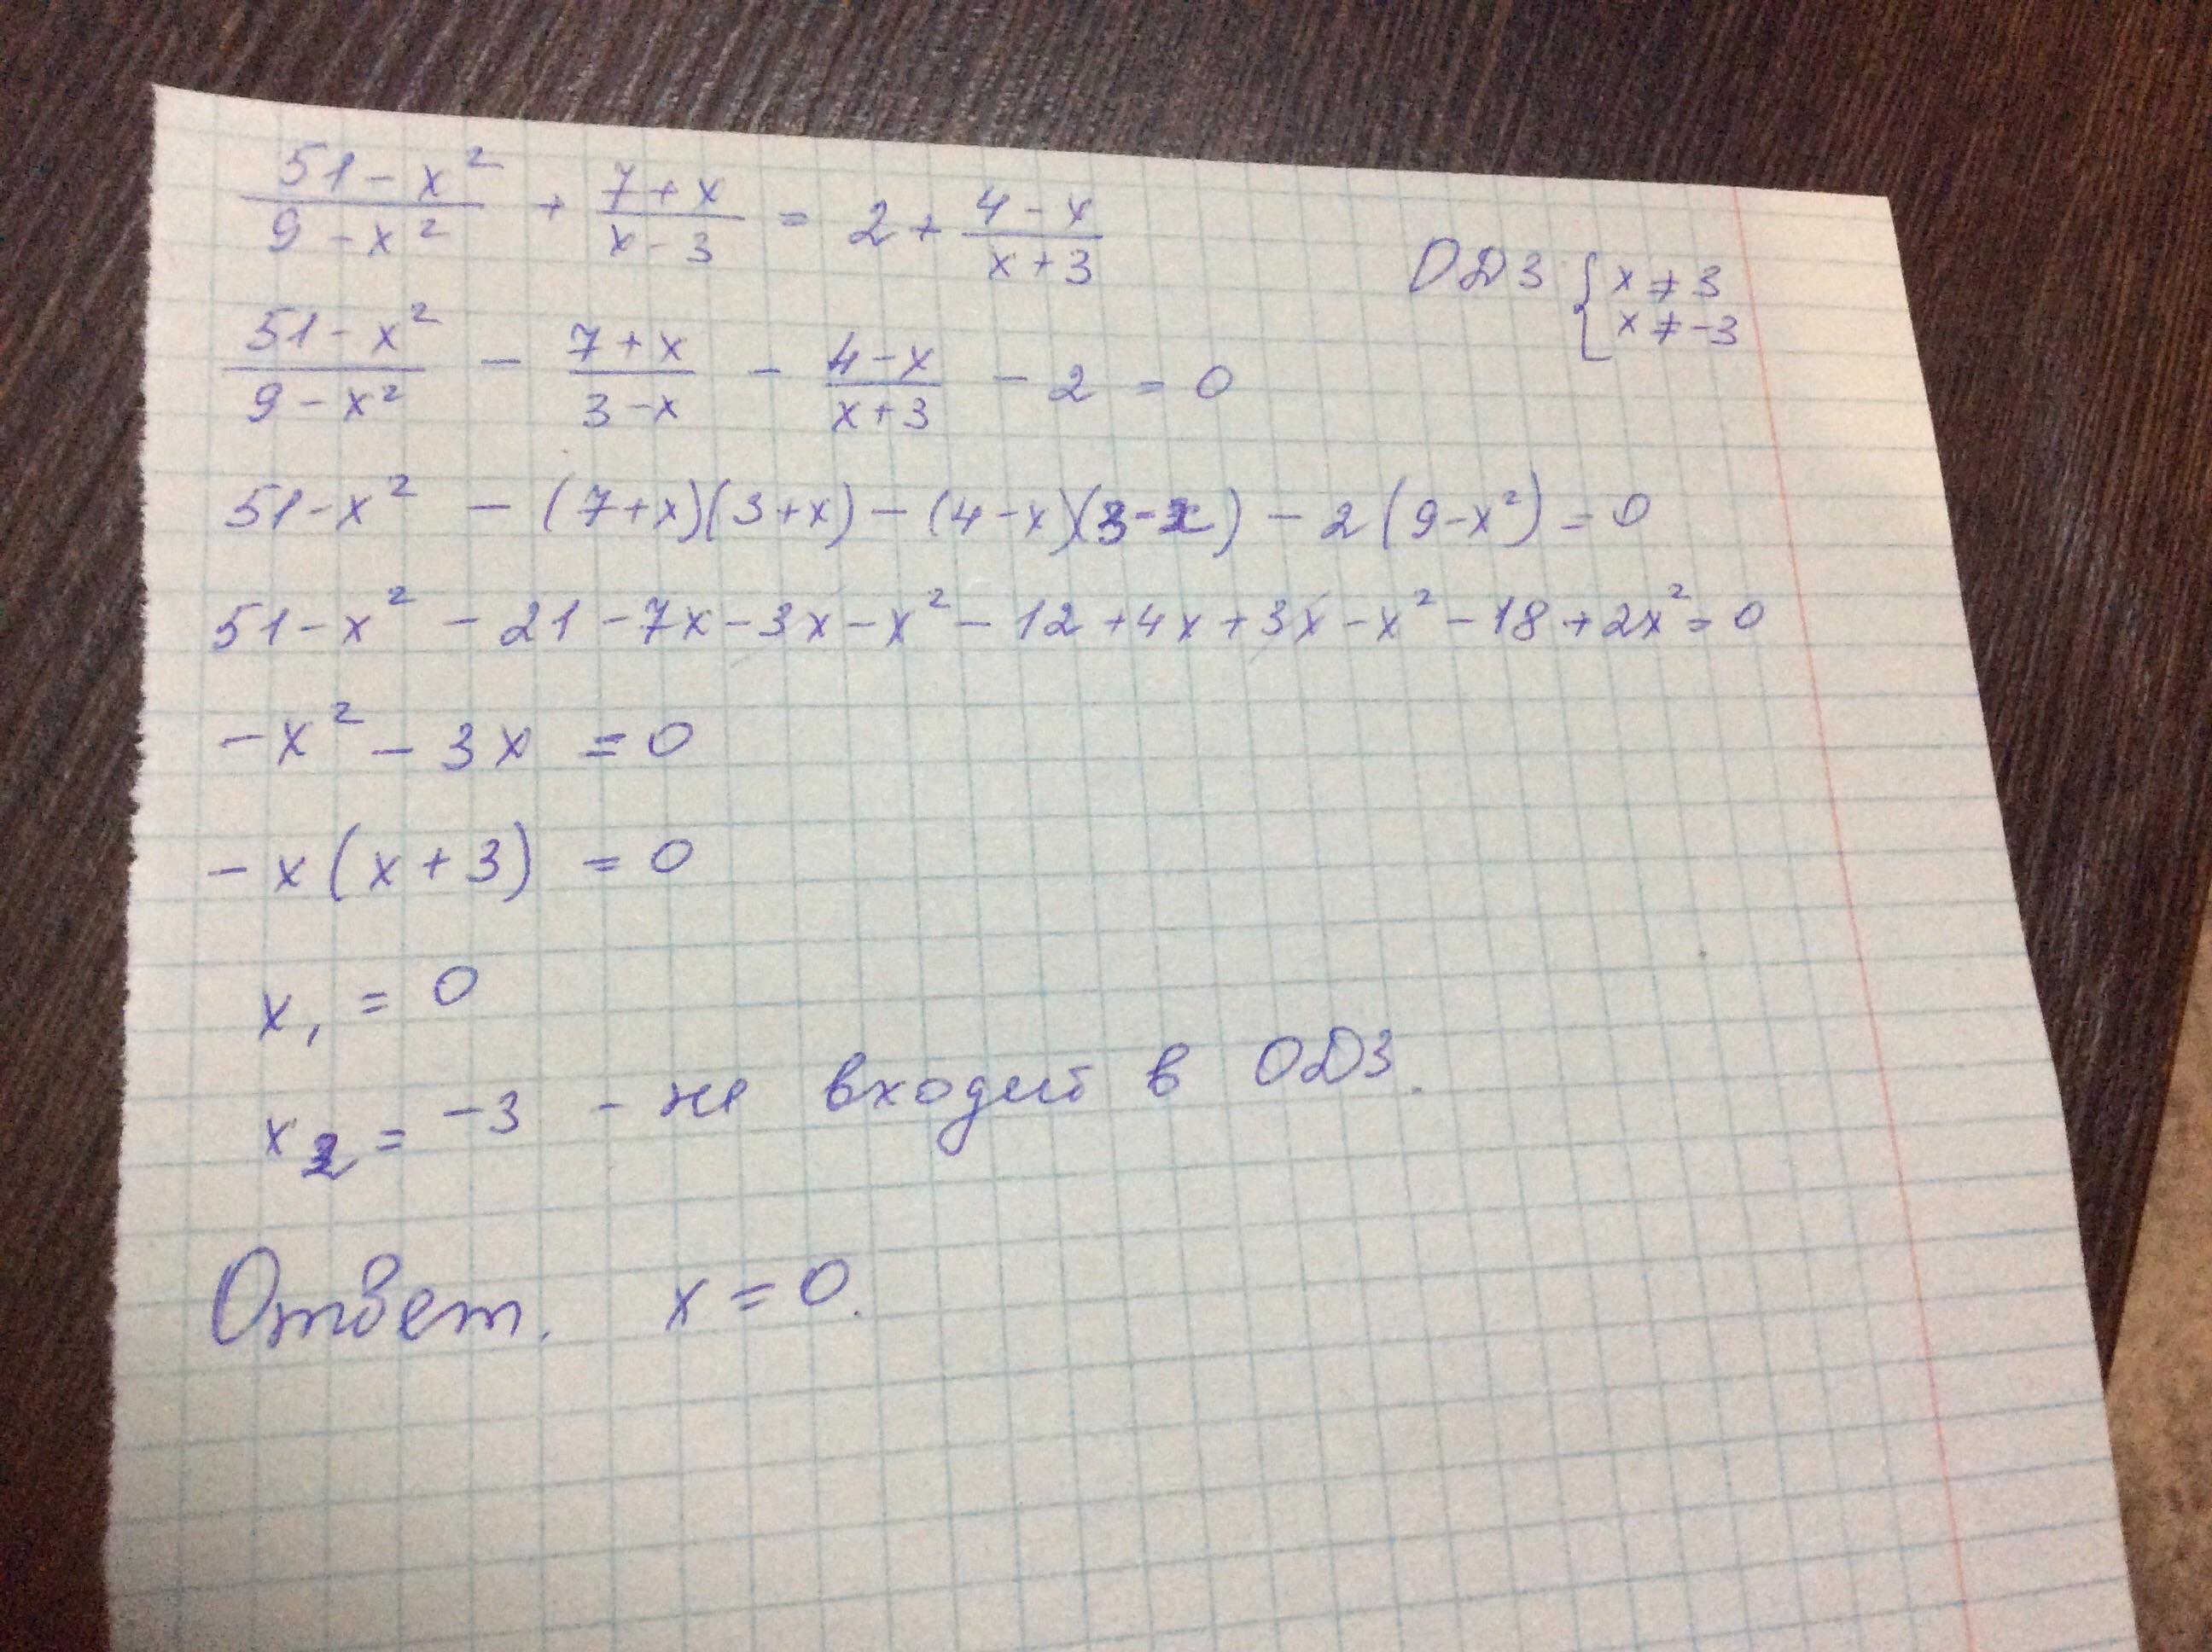 (51-x²)/(9-x²) + (7+x)/(x-3) = 2 + (4-x)/(x+3)
ОДЗ { x ≠ 3
x ≠ -3
(51-x²)/(9-x²) - (7+x)/(3-x) - (4-x)/(x+3) - 2 = 0
51-x² - (7+x)(3+x) - (4-x)(3-x) - 2(9-x²) = 0
51-x² - 21 - 7x - 3x - x² - 12 + 4x + 3x - x² - 18 + 2x² = 0
-x² - 3x = 0
-x(x+3) = 0
x₁ = 0
x₂ = -3 - не входит в ОДЗ.
Ответ. x = 0.